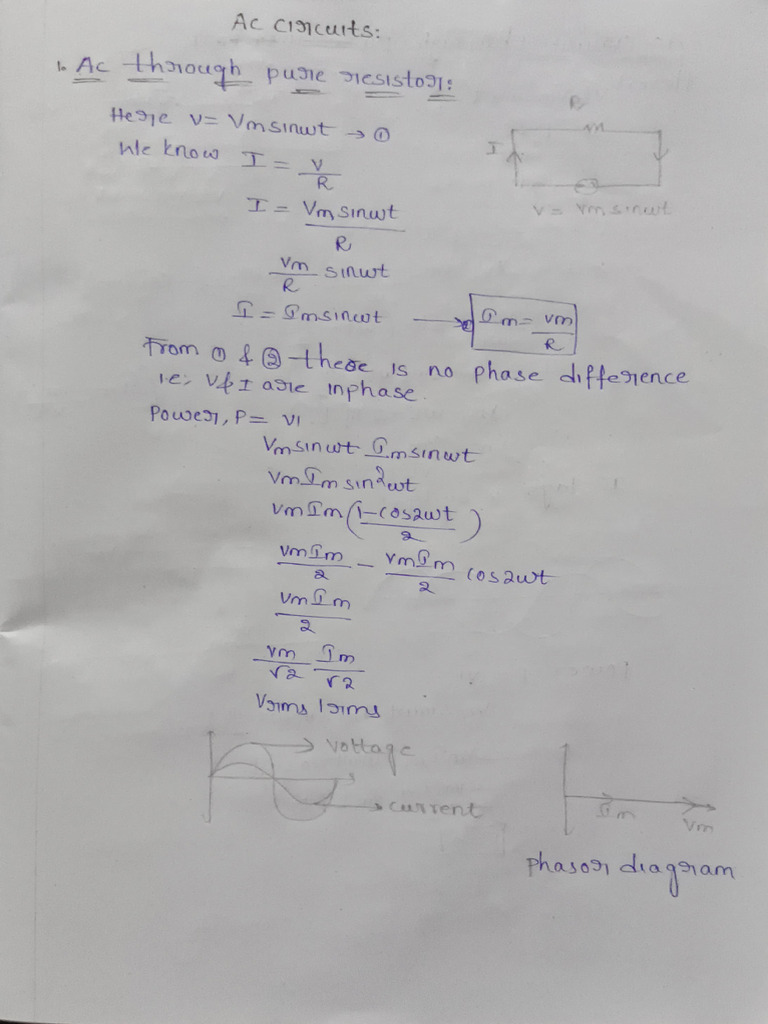 Ac circuits:
1. Ac through pure resistor:
Here v = Vm sinωt → ①
We know I = V/R
R
I
V = Vm sinωt
I = Vm sinωt/R
Vm/R sinωt
I = Im sinωt → ② Im = Vm/R
From ① & ② there is no phase difference
i.e; V & I are inphase.
Power, P = VI
Vm sinωt Im sinωt
Vm Im sin²ωt
Vm Im (1-cos2ωt/2)
Vm Im/2 - Vm Im/2 cos2ωt
Vm Im/2
Vm/√2 Im/√2
Vrms Irms
→ voltage
→ current
Im
Vm
phasor diagram